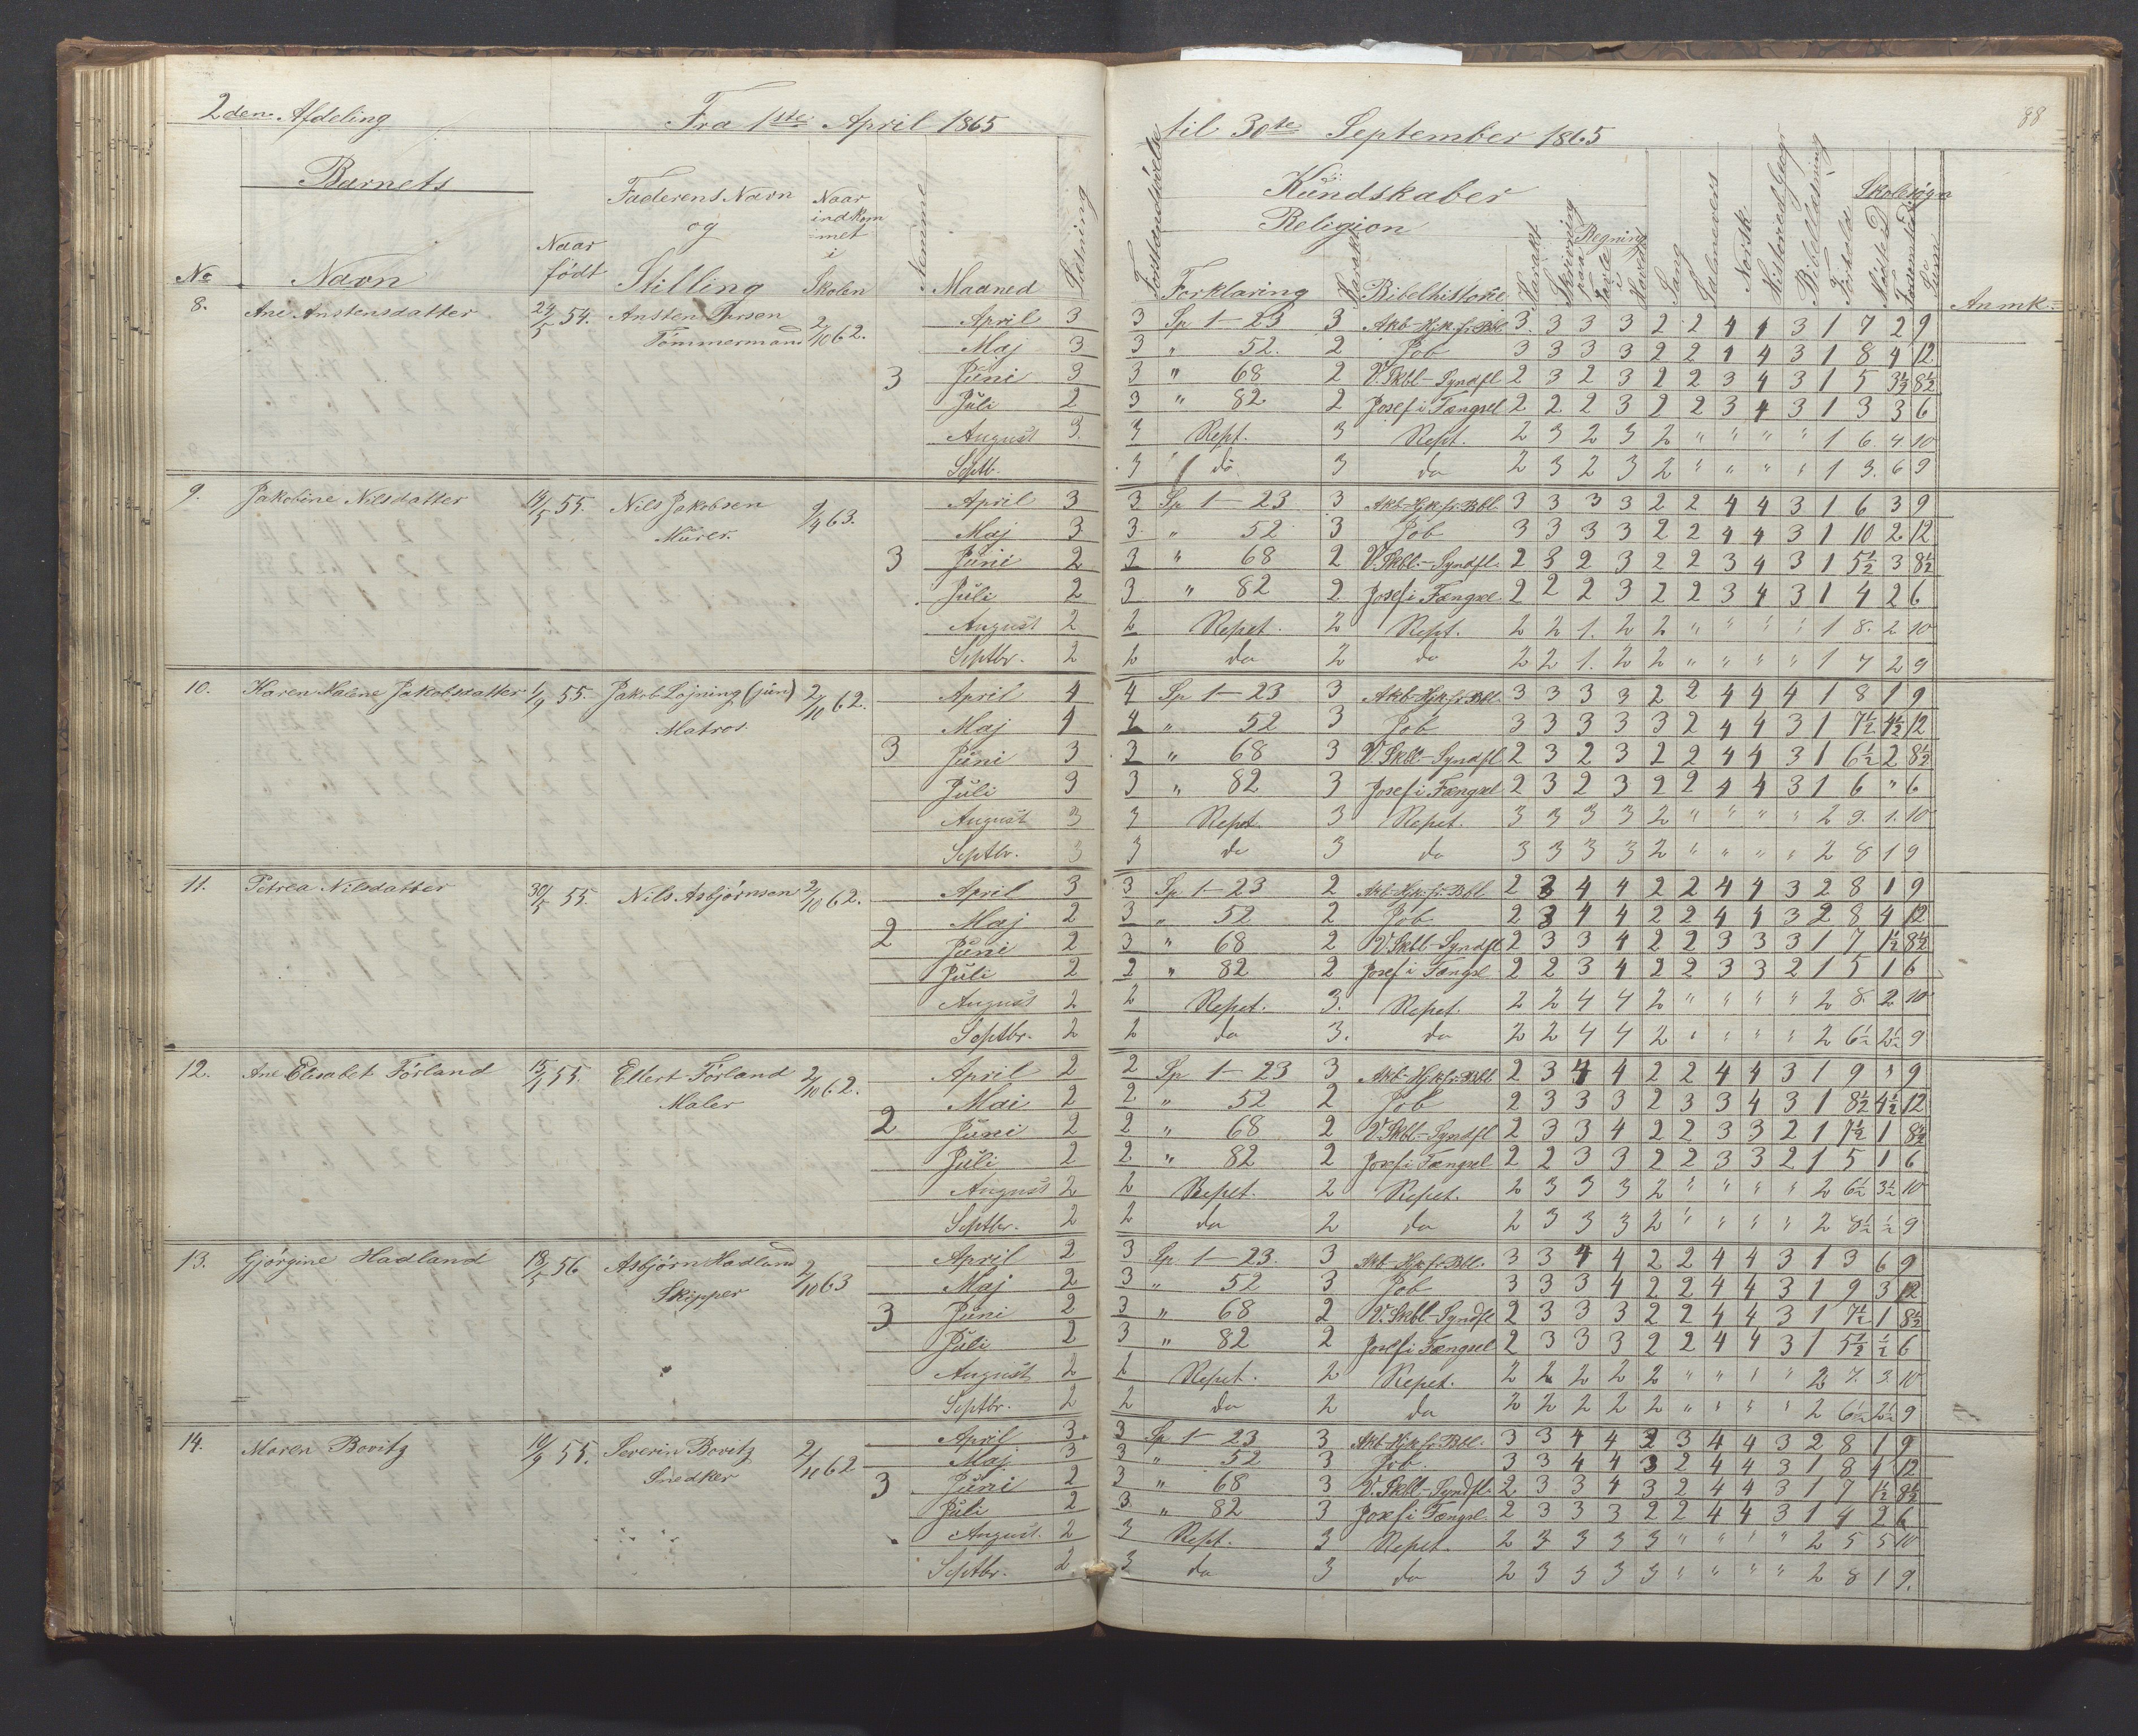 2den Afdeling Fra 1ste April 1865 til 30te September 1865 88
Barnets Faderens Navn og Stilling Naar indkommet i Skolen Nemme Maaned Læsning Forstandsøvelse Kundskaber Religion Skolesøgn.
No Navn Naar født Forklaring Karakt Bibelhistorie Karakt Skrivning Regning paa Tavle i Hovedet Sang Salmevers Norsk Historie og Geogr Bibellæsning Forhold Mødte D Forsømte D Sum Anmk.
8. Ane Anstensdatter 24/5 54. Ansten 2/10 62. April 3 3 Sp 1-23 3 Akb-Hjk.fr.Bbl. 3 3 3 3 2 2 4 4 3 1 7 2 9
Tömmermand Maj 3 3 " 52. 2 Job 3 3 3 3 2 2 4 4 3 1 8 4 12
3 Juni 3 3 " 68 2 V.Skbl-Syndfl 2 3 2 3 2 2 3 4 3 1 5 3½ 8½
Juli 2 3 " 82 2 Josef i Fængsel 2 2 2 3 2 2 3 4 3 1 3 3 6
August 3. 3 Rept. 3 Rept. 2 3 2 3 2 " " " " 1 6. 4 10
Septb. 3 do 3 do 2 3 2 3 2 " " " " 1 3. 6 9
9. Jakobine Nilsdatter 14/5 55. Nils Jakobsen 9/4 63. April 3 3 Sp 1-23 3 Akb-Hjk.fr.Bbl. 3 3 3 3 2 2 4 4 3 1 6 3 9
Murer. Maj 3 3 " 52 3 Job 3 3 3 3 2 2 4 4 3 1 10 2 12
3 Juni 2 3 " 68 2 V.Skbl.-Syndfl. 2 3 2 3 2 2 3 4 3 1 5½ 3 8½
Juli 2 3 " 82 2 Josef i Fængsel 2 2 2 3 2 2 3 4 3 1 4 2 6
August 2 2 Repet. 2 Rept. 2 2 1. 2 2 " " " " 1 8. 2 10
Septbr. 2 2 do 2 do 2 2 1. 2 2 " " " " 1 7 2 9
10. Karen Malene Jakobsdatter 1/9 55. Jakob Løjning (jun) 2/10 62. April 4 4 Sp 1-23 3 Akb-Hjk.fr.Bbl. 3 3 3 3 2 2 4 4 4 1 8 1 9
Matros. Maj 4 4 " 52 3 Job 3 3 3 3 3 2 4 4 3 1 7½ 4½ 12
3 Juni 3 3 " 68 3 V.Skbl-Syndfl 2 3 2 3 2 2 4 4 3 1 6½ 2 8½
Juli 3 3 " 82 3 Josef i Fængsel 2 3 2 3 2 2 4 4 3 1 6 " 6
August 3 3 Repet. 3 Repet. 3 3 3 3 2 " " " " 2 9. 1. 10
Septbr. 3 3 do 3 do 3 3 3 3 2 " " " " 2 8 1 9
11. Petrea Nilsdatter 30/5 55. Nils Asbjörnsen 2/10 62. April 3 3 Sp 1-23 2 Akb-Hjk.fr.Bbl 2 3 4 4 2 2 4 4 3 2 8 1 9
2 Maj 2 3 " 52 2 Job 2 3 4 4 2 2 4 4 3 2 8 4 12
Juni 2 3 " 68 2 V.Skbl-Syndfl 2 3 3 4 2 2 3 3 3 1 7 1½ 8½
Juli 2 2 " 82 2 Josef i Fængsl. 2 2 3 4 2 2 3 3 2 1 5 1 6
August 2 2 Repet. 3. Repet. 2 2 4 4 2 " " " " 2 8. 2 10
Septbr. 2 2 do 3. do 2 2 4 4 2 " " " " 2 6½ 2½ 9
12. Ane Elisabet Förland 15/1 55. Ellert Förland 2/10 62. April 2 2 Sp 1-23 3 Akb-Hjk.fr.Bbl 2 3 4 4 2 2 4 4 3 1 9 " 9
Maler Mai 2 2 " 52 2 Job 2 3 3 3 2 3 3 4 3 1 8½ 4½ 12
2 Juni 2 2 " 68 2 V.Skbl-Syndfl 2 3 3 4 2 2 3 3 2 1 7½ 1 8½
Juli 2 2 " 82 2 Josef i Fængsel 2 2 3 3 2 2 3 3 2 1 5 1 6
August 2 2 Repet. 2 Repet. 2 3 3 3 2 " " " " 2 6½ 3½ 10
Septbr. 2 2 do 2 do 2 3 3 3 2 " " " " 2 8½ ½ 9
13. Gjörgine Hadland 18/5 56 Asbjörn Hadland 2/10 63 April 2 3 Sp. 1-23. 3 Akb-Hjk.fr.Bbl. 3 3 4 4 2 2 4 4 3 1 3 6 9
Skipper Maj 2 3 " 52 3 Job 3 3 3 4 2 2 4 4 3 1 9 3 12
3 Juni 2 3 " 68 2 V.Skbl-Syndfl 2 3 3 3 2 2 4 4 3 1 7½ 1 8½
Juli 2 3 " 82 2 Josef i Fængsel 2 3 3 3 2 2 4 4 3 1 5½ ½ 6
August 2 2 Repet. 2 Repet. 2 2 2 2 2 " " " " 2 7. 3. 10
Septbr. 2 2 do 2 do 2 2 2 2 2 " " " " 2 6½ 2½ 9
14. Maren Bovitz 10/9 55. Severin Bovitz 2/10 62 April 3. 3 Sp 1-23 3 Akb-Hjk.fr.Bbl. 3 3 4 4 2 3 4 4 3 2 8 1 9
Snedker Maj 3 3 " 52 3 Job. 3 3 4 4 3 2 4 4 3 1 8 4 12
3 Juni 2 3 " 68 3 V.Skbl.-Syndfl. 2 3 3 4 3 2 4 4 3 1 7 1½ 8½
Juli 2 3 " 82 3 Josef i Fængsl. 2 3 3 3 2 2 4 4 3 1 4 2 6
August. 2 3 Rept. 3 Repet. 2 3 3 3 3 " " " " 2 5 5 10
Septbr. 2 3 do 3 do 2 3 3 3 3 " " " " 2 8 1 9.